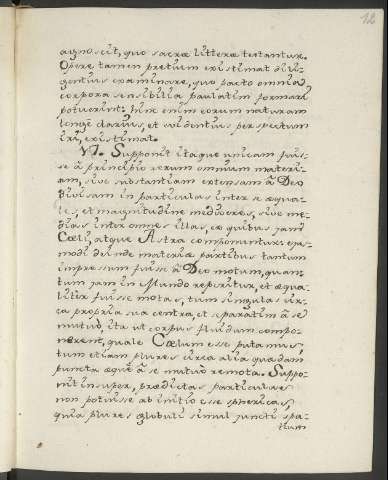 12
agnoscit, quo sacræ litteræ testantur.
Operæ tamen pretium existimat dili-
gentius examinare, quo pacto omnia
corpora sensibilia paulatim formari
potuerint: hinc enim eorum naturam
longe clarius, et evidentius perspectum
iri, existimat.
VI. Supponit itaque unicam fuis-
se à principio rerum omnium materi-
am, sive substantiam extensam à Deo
divisam in particulas inter se æqua-
les, et magnitudine mediocres, sive me-
dias inter omnes illas, ex quibus jam
Cœli, atque Astra componuntur: ejus-
modi deinde materiæ partibus tantum
impressum fuisse à Deo motum, quan-
tum jam in Mundo reperitur, et æqua-
liter fuisse motas, tum singulas cir-
ca propria sua centra, et separatim à se
mutuò, ita ut corpus fluidum compo-
nerent, quale Cœlum esse putamus,
tum etiam plures circa alia quædam
puncta æque à se mutuò remota. Suppo-
nit insuper, prædictas particulas
non potuisse ab initio esse sphæricas,
quia plures globuli simul juncti spa-
tium